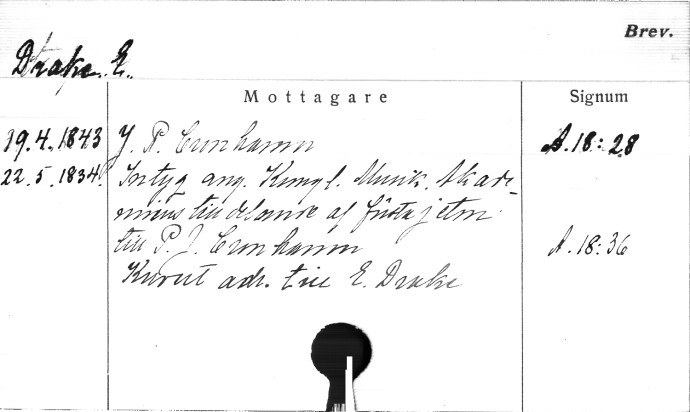 Brev.
Drake, E.
Mottagare
Signum
19.4.1843 J. P. Cronhamn A. 18: 28
22.5.1834. Intyg ang. Kungl. Musik. Akade-
miens tilldelande af första jeton
till P. J. Cronhamn A. 18: 36
Kuvert adr. till E. Drake